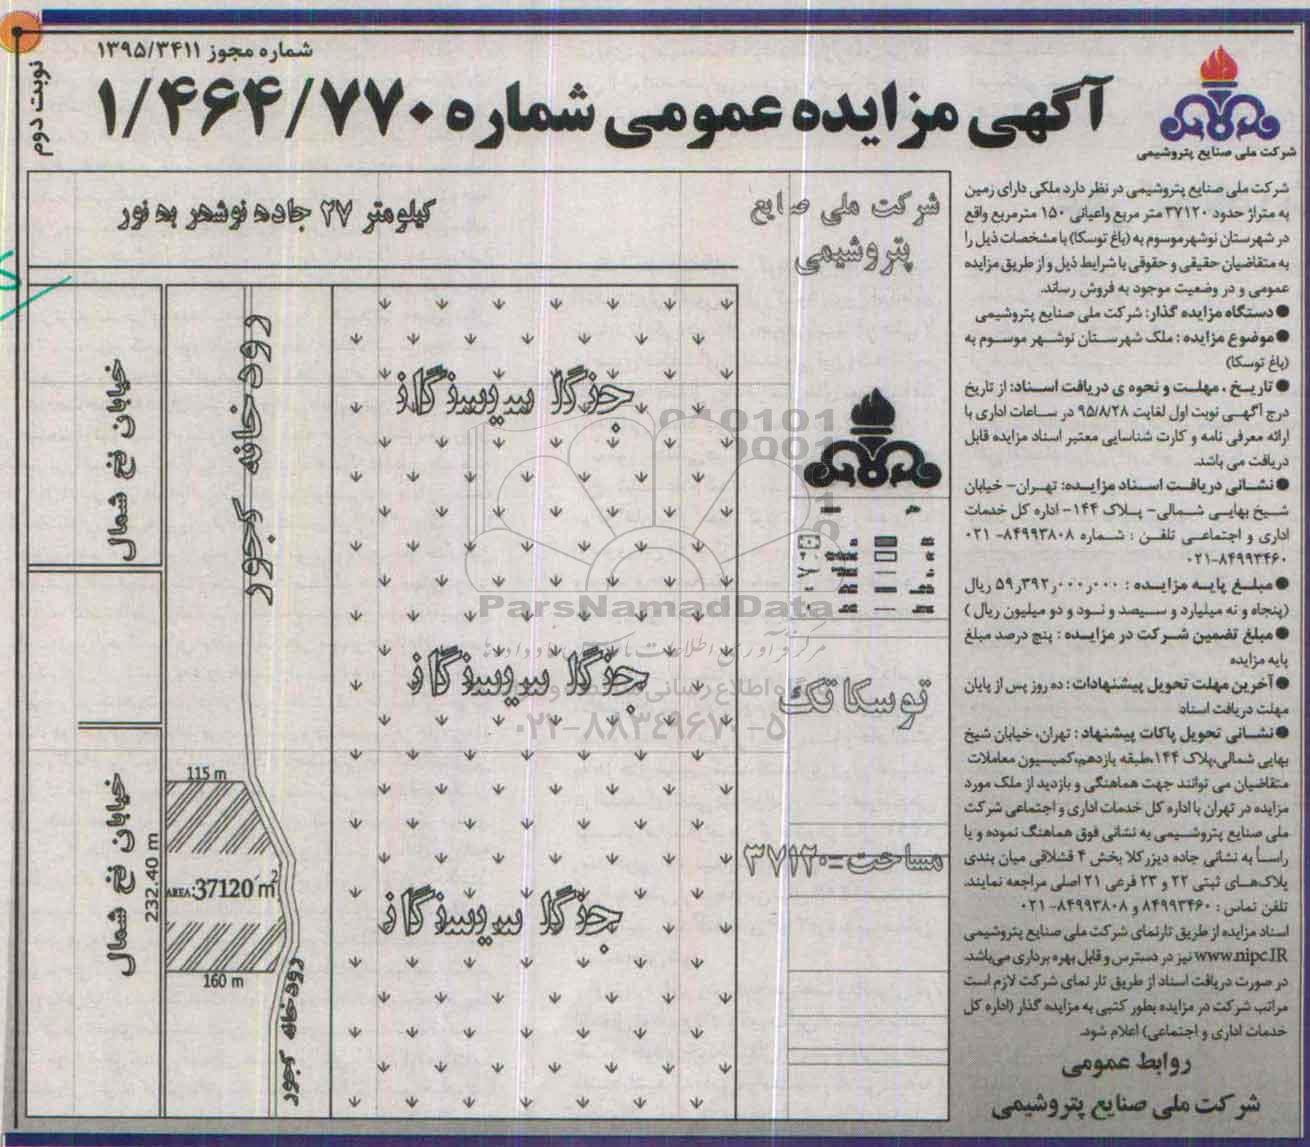 شماره مجوز ۱۳۹۵/۳۴۱۱
نوبت دوم
آگهی مزایده عمومی شماره ۱/۴۶۴/۷۷۰
شرکت ملی صنایع پتروشیمی
شرکت ملی صنایع پتروشیمی در نظر دارد ملکی دارای زمین
به متراژ حدود ۳۷۱۲۰ متر مربع واعیانی ۱۵۰ مترمربع واقع
در شهرستان نوشهرموسوم به (باغ توسکا) با مشخصات ذیل را
به متقاضیان حقیقی و حقوقی با شرایط ذیل و از طریق مزایده
عمومی و در وضعیت موجود به فروش رساند.
●دستگاه مزایده گذار: شرکت ملی صنایع پتروشیمی
●موضوع مزایده : ملک شهرستان نوشهر موسوم به
(باغ توسکا)
●تاریخ ، مهلت و نحوه ی دریافت اسناد: از تاریخ
درج آگهی نوبت اول لغایت ۹۵/۸/۲۸ در ساعات اداری با
ارائه معرفی نامه و کارت شناسایی معتبر اسناد مزایده قابل
دریافت می باشد.
●نشانی دریافت اسناد مزایده: تهران- خیابان
شیخ بهایی شمالی- پلاک ۱۴۴- اداره کل خدمات
اداری و اجتماعی تلفن : شماره ۸۴۹۹۳۸۰۸- ۰۲۱
۰۲۱-۸۴۹۹۳۴۶۰
●مبلغ پایه مزایده : ۵۹٫۳۹۲٫۰۰۰٫۰۰۰ ریال
(پنجاه و نه میلیارد و سیصد و نود و دو میلیون ریال )
●مبلغ تضمین شرکت در مزایده : پنج درصد مبلغ
پایه مزایده
●آخرین مهلت تحویل پیشنهادات : ده روز پس از پایان
مهلت دریافت اسناد
●نشانی تحویل پاکات پیشنهاد : تهران، خیابان شیخ
بهایی شمالی،پلاک ۱۴۴،طبقه یازدهم،کمیسیون معاملات
متقاضیان می توانند جهت هماهنگی و بازدید از ملک مورد
مزایده در تهران با اداره کل خدمات اداری و اجتماعی شرکت
ملی صنایع پتروشیمی به نشانی فوق هماهنگ نموده و یا
راساً به نشانی جاده دیزرکلا بخش ۴ قشلاقی میان بندی
پلاک‌های ثبتی ۲۲ و ۲۳ فرعی ۲۱ اصلی مراجعه نمایند.
تلفن تماس : ۸۴۹۹۳۴۶۰ و ۸۴۹۹۳۸۰۸- ۰۲۱
اسناد مزایده از طریق تارنمای شرکت ملی صنایع پتروشیمی
www.nipc.IR نیز در دسترس و قابل بهره برداری می‌باشد.
در صورت دریافت اسناد از طریق تار نمای شرکت لازم است
مراتب شرکت در مزایده بطور کتبی به مزایده گذار (اداره کل
خدمات اداری و اجتماعی) اعلام شود.
روابط عمومی
شرکت ملی صنایع پتروشیمی
شرکت ملی صنایع
پتروشیمی
توسکا تک
مساحت=۳۷۱۲۰
کیلومتر ۲۷ جاده نوشهر به نور
جنگل سیسنگان
جنگل سیسنگان
جنگل سیسنگان
رودخانه کجور
رودخانه کجور
خیابان نخ شمال
خیابان نخ شمال
115 m
232.40 m
AREA:37120 m²
160 m
ParsNamadData
۰۲۱-۸۸۳۴۹۶۷۰-۵